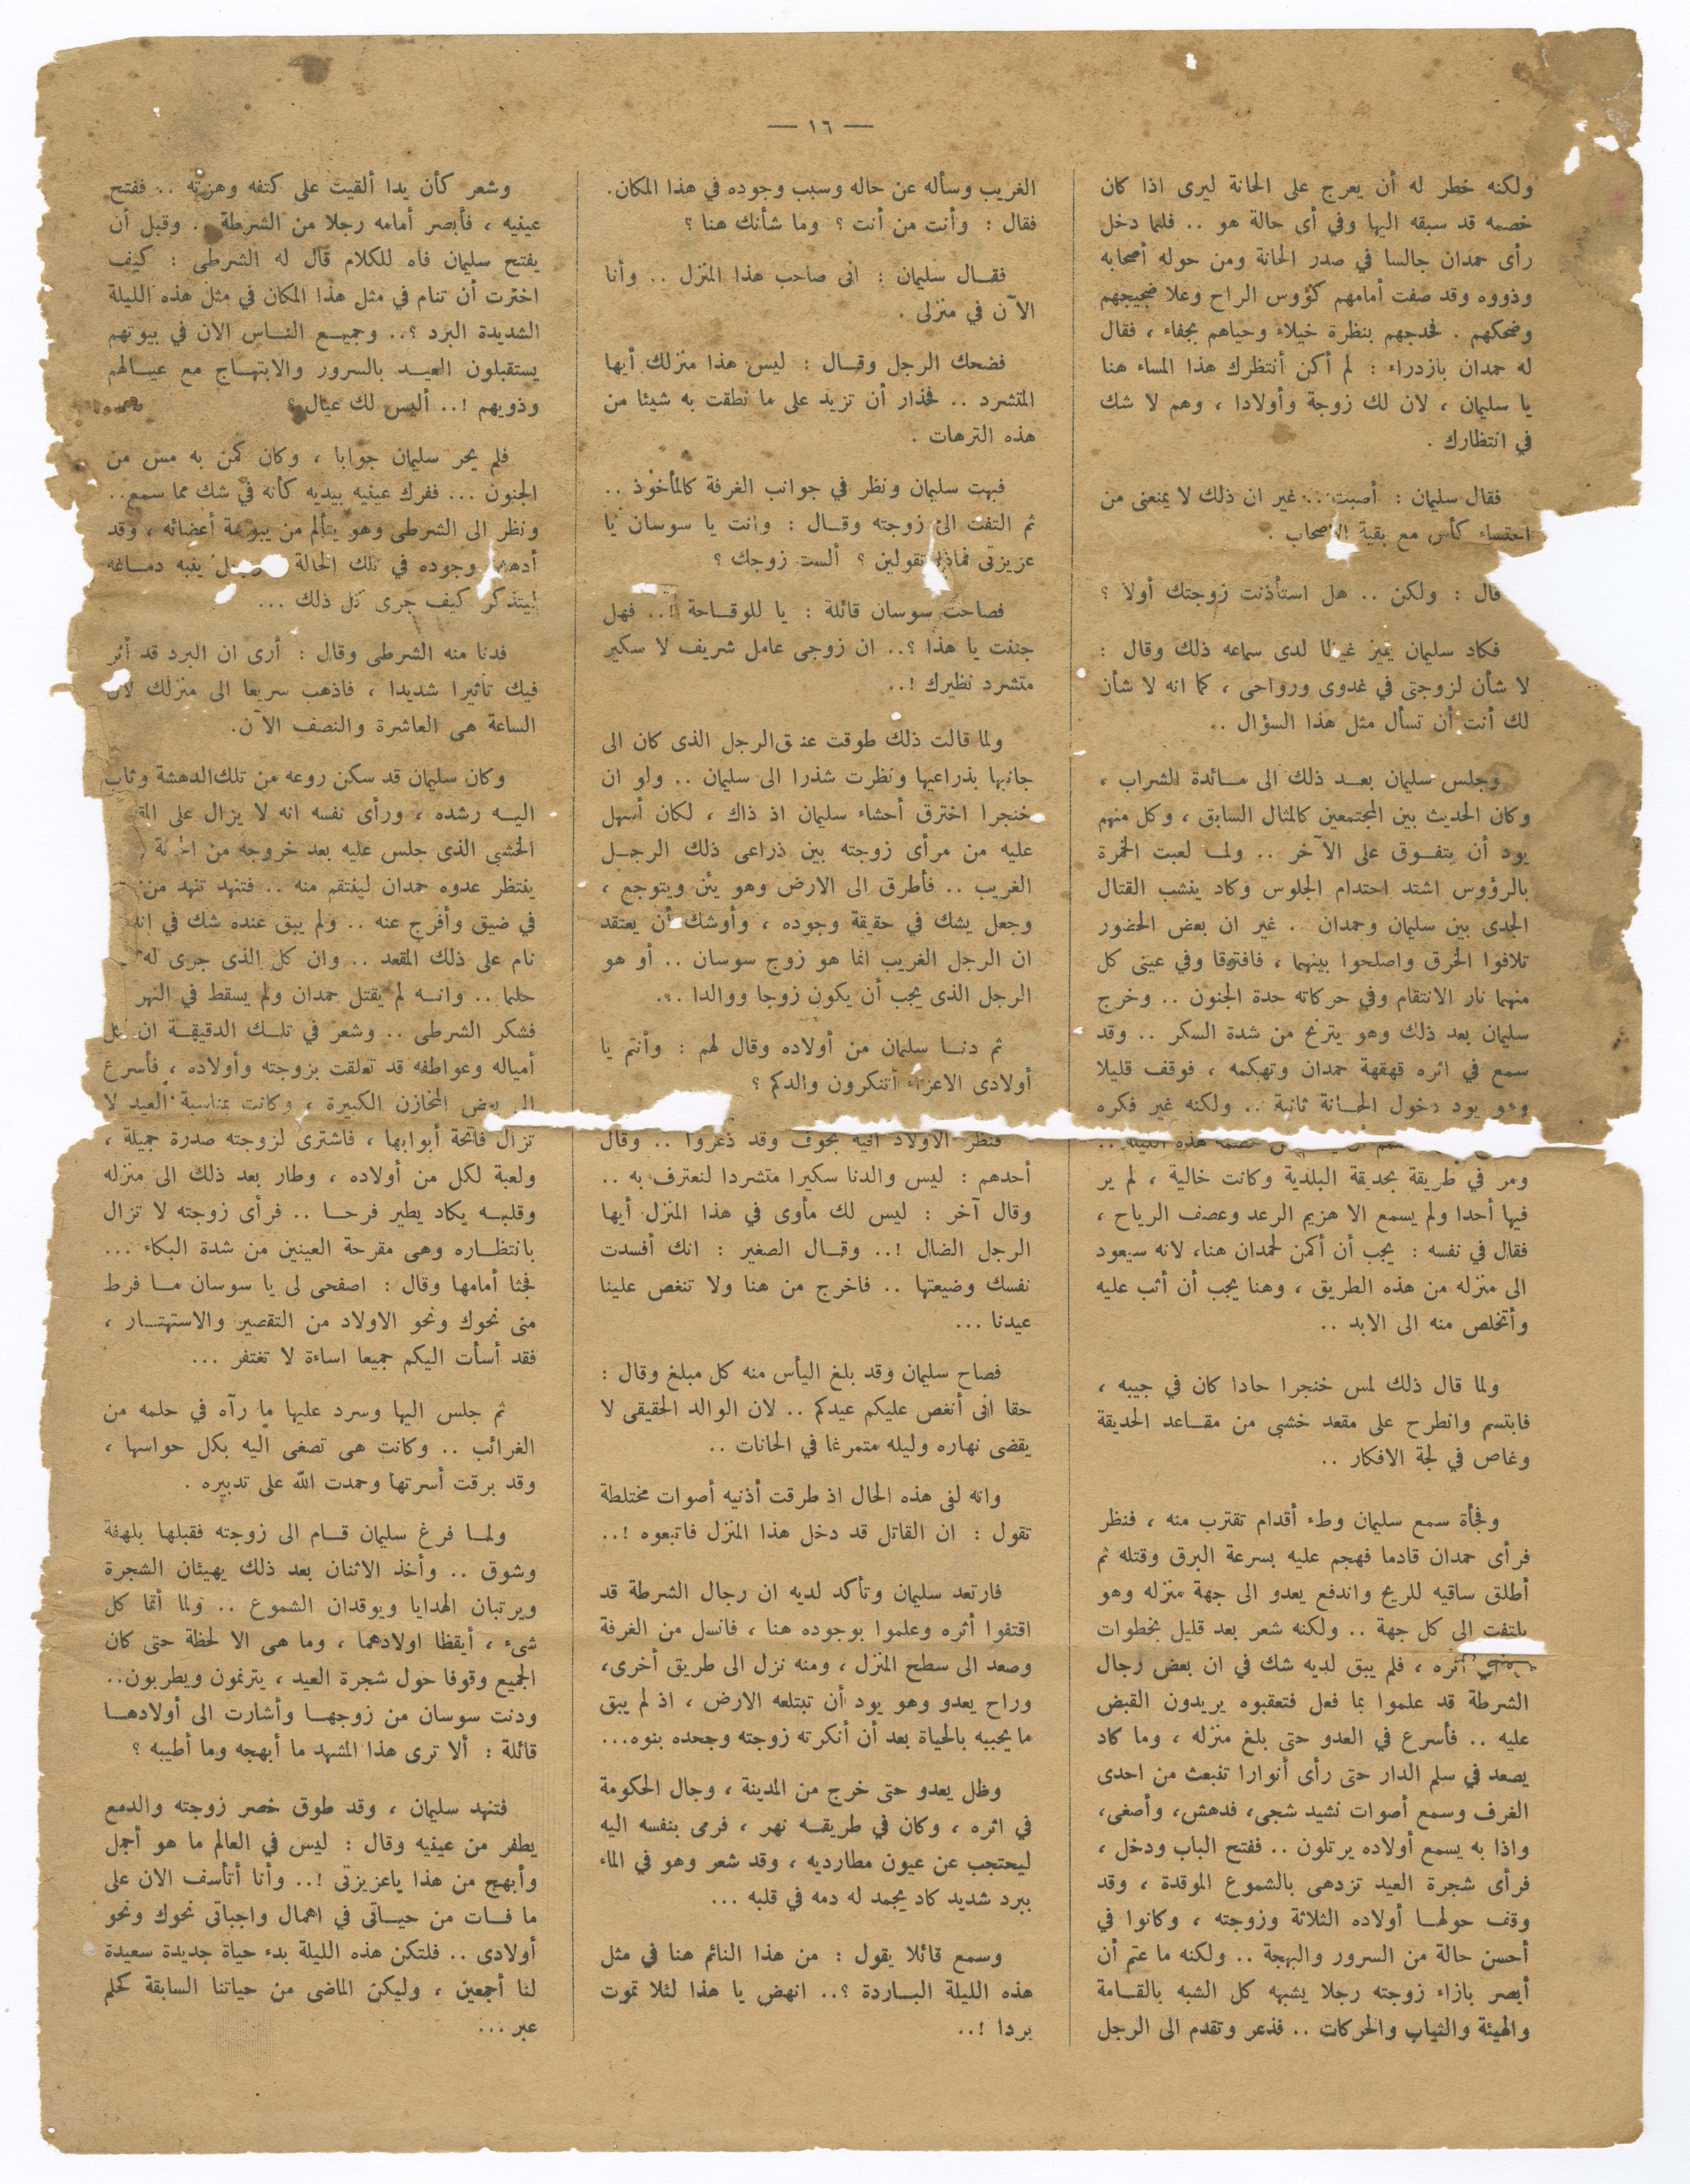 — ١٦ —
ولكنه خطر له أن يعرج على الحانة ليرى اذا كان
خصمه قد سبقه اليها وفي أى حالة هو .. فلما دخل
رأى حمدان جالسا في صدر الحانة ومن حوله أصحابه
وذووه وقد صفت أمامهم كؤوس الراح وعلا ضجيجهم
وضحكهم . فحدجهم بنظرة خيلاء وحياهم بجفاء ، فقال
له حمدان بازدراء : لم أكن أنتظرك هذا المساء هنا
يا سليمان ، لان لك زوجة وأولادا ، وهم لا شك
في انتظارك .
فقال سليمان : أصبت .. غير ان ذلك لا يمنعنى من
احتساء كأس مع بقية الاصحاب .
قال : ولكن .. هل استأذنت زوجتك أولا ؟
فكاد سليمان يميز غيظا لدى سماعه ذلك وقال :
لا شأن لزوجتى في غدوى ورواحى ، كما انه لا شأن
لك أنت أن تسأل مثل هذا السؤال ..
وجلس سليمان بعد ذلك الى مائدة الشراب ،
وكان الحديث بين المجتمعين كالمثال السابق ، وكل منهم
يود أن يتفوق على الآخر .. ولما لعبت الخمرة
بالرؤوس اشتد احتدام الجلوس وكاد ينشب القتال
الجدى بين سليمان وحمدان .. غير ان بعض الحضور
تلافوا الخرق واصلحوا بينهما ، فافترقا وفي عينى كل
منهما نار الانتقام وفي حركاته حدة الجنون .. وخرج
سليمان بعد ذلك وهو يترنح من شدة السكر .. وقد
سمع في اثره قهقهة حمدان وتهكمه ، فوقف قليلا
وهو يود دخول الحانة ثانية .. ولكنه غير فكره
خصمه هذه الليلة ..
ومر في طريقة بحديقة البلدية وكانت خالية ، لم ير
فيها أحدا ولم يسمع الا هزيم الرعد وعصف الرياح ،
فقال في نفسه : يجب أن أكمن لحمدان هنا، لانه سيعود
الى منزله من هذه الطريق ، وهنا يجب أن أثب عليه
وأتخلص منه الى الابد ..
ولما قال ذلك لمس خنجرا حادا كان في جيبه ،
فابتسم وانطرح على مقعد خشبى من مقاعد الحديقة
وغاص في لجة الافكار ..
وفجأة سمع سليمان وطء أقدام تقترب منه ، فنظر
فرأى حمدان قادما فهجم عليه بسرعة البرق وقتله ثم
أطلق ساقيه للريح واندفع يعدو الى جهة منزله وهو
يلتفت الى كل جهة .. ولكنه شعر بعد قليل بخطوات
أثره ، فلم يبق لديه شك في ان بعض رجال
الشرطة قد علموا بما فعل فتعقبوه يريدون القبض
عليه .. فأسرع في العدو حتى بلغ منزله ، وما كاد
يصعد في سلم الدار حتى رأى أنوارا تنبعث من احدى
الغرف وسمع أصوات نشيد شجى، فدهش، وأصغى،
واذا به يسمع أولاده يرتلون .. ففتح الباب ودخل ،
فرأى شجرة العيد تزدهى بالشموع الموقدة ، وقد
وقف حولها أولاده الثلاثة وزوجته ، وكانوا في
أحسن حالة من السرور والبهجة .. ولكنه ما عتم أن
أبصر بازاء زوجته رجلا يشبهه كل الشبه بالقامة
والهيئة والثياب والحركات .. فذعر وتقدم الى الرجل
الغريب وسأله عن حاله وسبب وجوده في هذا المكان.
فقال : وأنت من أنت ؟ وما شأنك هنا ؟
فقال سليمان : انى صاحب هذا المنزل .. وأنا
الآن في منزلى .
فضحك الرجل وقال : ليس هذا منزلك أيها
المتشرد .. فحذار أن تزيد على ما نطقت به شيئا من
هذه الترهات .
فبهت سليمان ونظر في جوانب الغرفة كالمأخوذ ..
ثم التفت الى زوجته وقال : وانت يا سوسان يا
عزيزتى فماذا تقولين ؟ ألست زوجك ؟
فصاحت سوسان قائلة : يا للوقاحة !.. فهل
جننت يا هذا ؟.. ان زوجى عامل شريف لا سكير
متشرد نظيرك !..
ولما قالت ذلك طوقت عنق الرجل الذى كان الى
جانبها بذراعيها ونظرت شذرا الى سليمان .. ولو ان
خنجرا اخترق أحشاء سليمان اذ ذاك ، لكان أسهل
عليه من مرأى زوجته بين ذراعى ذلك الرجل
الغريب .. فأطرق الى الارض وهو يئن ويتوجع ،
وجعل يشك في حقيقة وجوده ، وأوشك أن يعتقد
ان الرجل الغريب انما هو زوج سوسان .. أو هو
الرجل الذى يجب أن يكون زوجا ووالدا ...
ثم دنا سليمان من أولاده وقال لهم : وأنتم يا
أولادى الاعزاء أتنكرون والدكم ؟
فنظر الاولاد اليه بخوف وقد ذعروا .. وقال
أحدهم : ليس والدنا سكيرا متشردا لنعترف به ..
وقال آخر : ليس لك مأوى في هذا المنزل أيها
الرجل الضال !.. وقال الصغير : انك أفسدت
نفسك وضيعتها .. فاخرج من هنا ولا تنغص علينا
عيدنا ...
فصاح سليمان وقد بلغ اليأس منه كل مبلغ وقال :
حقا انى أنغص عليكم عيدكم .. لان الوالد الحقيقى لا
يقضى نهاره وليله متمرغا في الحانات ..
وانه لفى هذه الحال اذ طرقت أذنيه أصوات مختلطة
تقول : ان القاتل قد دخل هذا المنزل فاتبعوه !..
فارتعد سليمان وتأكد لديه ان رجال الشرطة قد
اقتفوا أثره وعلموا بوجوده هنا ، فانسل من الغرفة
وصعد الى سطح المنزل ، ومنه نزل الى طريق أخرى،
وراح يعدو وهو يود أن تبتلعه الارض ، اذ لم يبق
ما يحببه بالحياة بعد أن أنكرته زوجته وجحده بنوه...
وظل يعدو حتى خرج من المدينة ، وجال الحكومة
في اثره ، وكان في طريقه نهر ، فرمى بنفسه اليه
ليحتجب عن عيون مطارديه ، وقد شعر وهو في الماء
ببرد شديد كاد يجمد له دمه في قلبه ...
وسمع قائلا يقول : من هذا النائم هنا في مثل
هذه الليلة الباردة ؟.. انهض يا هذا لئلا تموت
بردا !..
وشعر كأن يدا ألقيت على كتفه وهزته .. ففتح
عينيه ، فأبصر أمامه رجلا من الشرطة .. وقبل أن
يفتح سليمان فاه للكلام قال له الشرطى : كيف
اخترت أن تنام في مثل هذا المكان في مثل هذه الليلة
الشديدة البرد ؟.. وجميع الناس الان في بيوتهم
يستقبلون العيد بالسرور والابتهاج مع عيالهم
وذويهم !.. أليس لك عيال ؟
فلم يحر سليمان جوابا ، وكان كمن به مس من
الجنون ... ففرك عينيه بيديه كأنه في شك مما سمع..
ونظر الى الشرطى وهو يتألم من يبوسة أعضائه ، وقد
وجوده في تلك الحالة ينبه دماغه
ليتذكر كيف جرى كل ذلك ...
فدنا منه الشرطى وقال : أرى ان البرد قد أثر
فيك تأثيرا شديدا ، فاذهب سريعا الى منزلك لان
الساعة هى العاشرة والنصف الآن.
وكان سليمان قد سكن روعه من تلك الدهشة وثاب
اليه رشده ، ورأى نفسه انه لا يزال على
الخشبى الذى جلس عليه بعد خروجه من
ينتظر عدوه حمدان لينتقم منه .. فتنهد تنهد من
في ضيق وأفرج عنه .. ولم يبق عنده شك في انه
نام على ذلك المقعد .. وان كل الذى جرى له
حلما .. وانه لم يقتل حمدان ولم يسقط في النهر
فشكر الشرطى .. وشعر في تلك الدقيقة ان كل
أمياله وعواطفه قد تعلقت بزوجته وأولاده ، فأسرع
الى بعض المخازن الكبيرة ، وكانت بمناسبة العيد لا
تزال فاتحة أبوابها ، فاشترى لزوجته صدرة جميلة ،
ولعبة لكل من أولاده ، وطار بعد ذلك الى منزله
وقلبه يكاد يطير فرحا .. فرأى زوجته لا تزال
بانتظاره وهى مقرحة العينين من شدة البكاء ...
فجثا أمامها وقال : اصفحى لى يا سوسان ما فرط
منى نحوك ونحو الاولاد من التقصير والاستهتار ،
فقد أسأت اليكم جميعا اساءة لا تغتفر ...
ثم جلس اليها وسرد عليها ما رآه في حلمه من
الغرائب .. وكانت هى تصغى اليه بكل حواسها ،
وقد برقت أسرتها وحمدت الله على تدبيره .
ولما فرغ سليمان قام الى زوجته فقبلها بلهفة
وشوق .. وأخذ الاثنان بعد ذلك يهيئان الشجرة
ويرتبان الهدايا ويوقدان الشموع .. ولما أتما كل
شىء ، أيقظا اولادهما ، وما هى الا لحظة حتى كان
الجميع وقوفا حول شجرة العيد ، يترنمون ويطربون..
ودنت سوسان من زوجها وأشارت الى أولادها
قائلة : ألا ترى هذا المشهد ما أبهجه وما أطيبه ؟
فتنهد سليمان ، وقد طوق خصر زوجته والدمع
يطفر من عينيه وقال : ليس في العالم ما هو أجمل
وأبهج من هذا ياعزيزتى !.. وأنا أتأسف الان على
ما فات من حياتى في اهمال واجباتى نحوك ونحو
أولادى .. فلتكن هذه الليلة بدء حياة جديدة سعيدة
لنا أجمعين ، وليكن الماضى من حياتنا السابقة كحلم
عبر ...